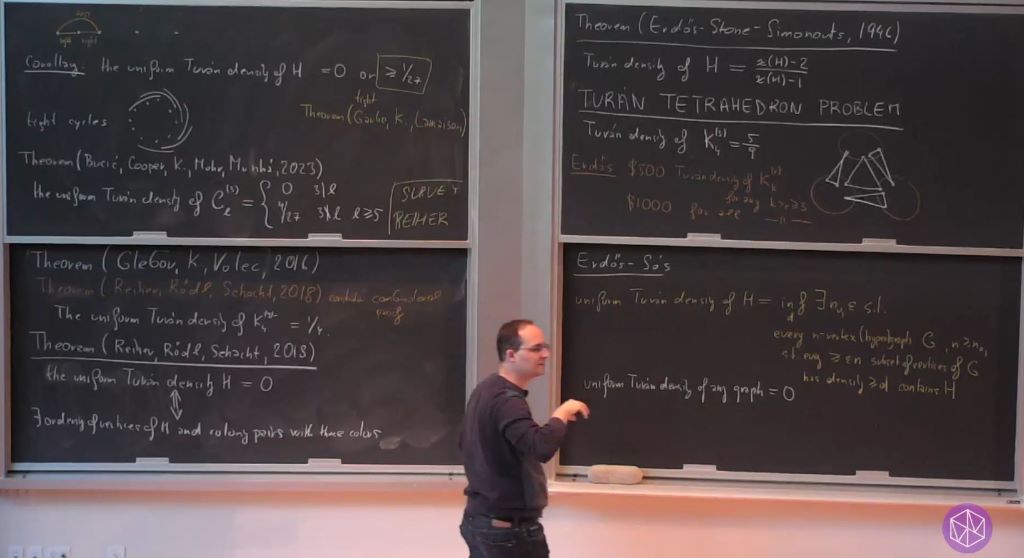 left right
Corollary: the uniform Turán density of H = 0 or ≥ 1/27
tight cycles
Theorem (Garbe, K., Lamaison)
tight
Theorem (Bucić, Cooper, K., Mohr, Munhá, 2023)
the uniform Turán density of C_ℓ^(3) = { 0 3|ℓ
4/27 3∤ℓ ℓ≥5
SURVEY
REIHER
Theorem (Glebov, K, Volec, 2016)
Theorem (Reiher, Rödl, Schacht, 2018) combinatorial
proof
The uniform Turán density of K_4^(3)- = 1/4.
Theorem (Reiher, Rödl, Schacht, 2018)
the uniform Turán density H = 0
⇕
∃ ordering of vertices of H and coloring pairs with three colors
Theorem (Erdős-Stone-Simonovits, 1946)
Turán density of H = χ(H)-2 / χ(H)-1
TURÁN TETRAHEDRON PROBLEM
Turán density of K_4^(3) = 5/9
Erdős $500 Turán density of K_k^(r)
for any k>r≥3
$1000 for all —"—
Erdős-Sós
uniform Turán density of H = inf_d ∃ n_0, ε s.t.
every n-vertex (hyper)graph G, n≥n_0,
st every ≥εn subset of vertices of G
has density ≥d contains H
uniform Turán density of any graph = 0